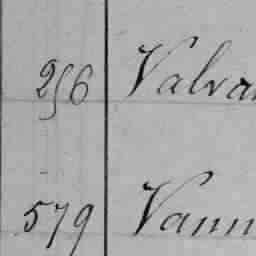 256 Valva
579 Vann